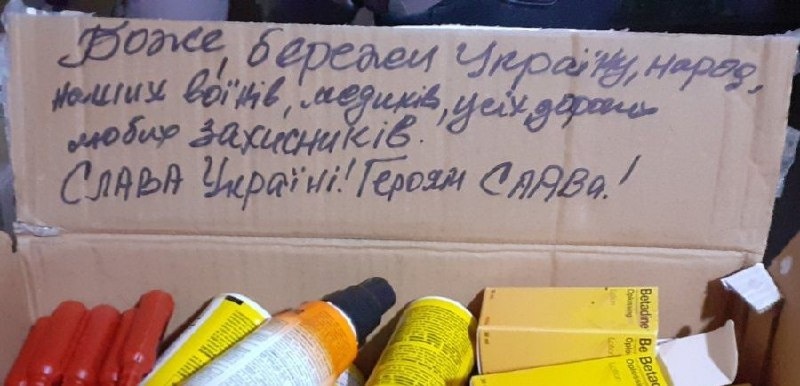 Боже, бережи Україну, народ,
наших воїнів, медиків, усіх дорогих
любих захисників.
Слава Україні! Героям Слава!
Betadine
Betadine